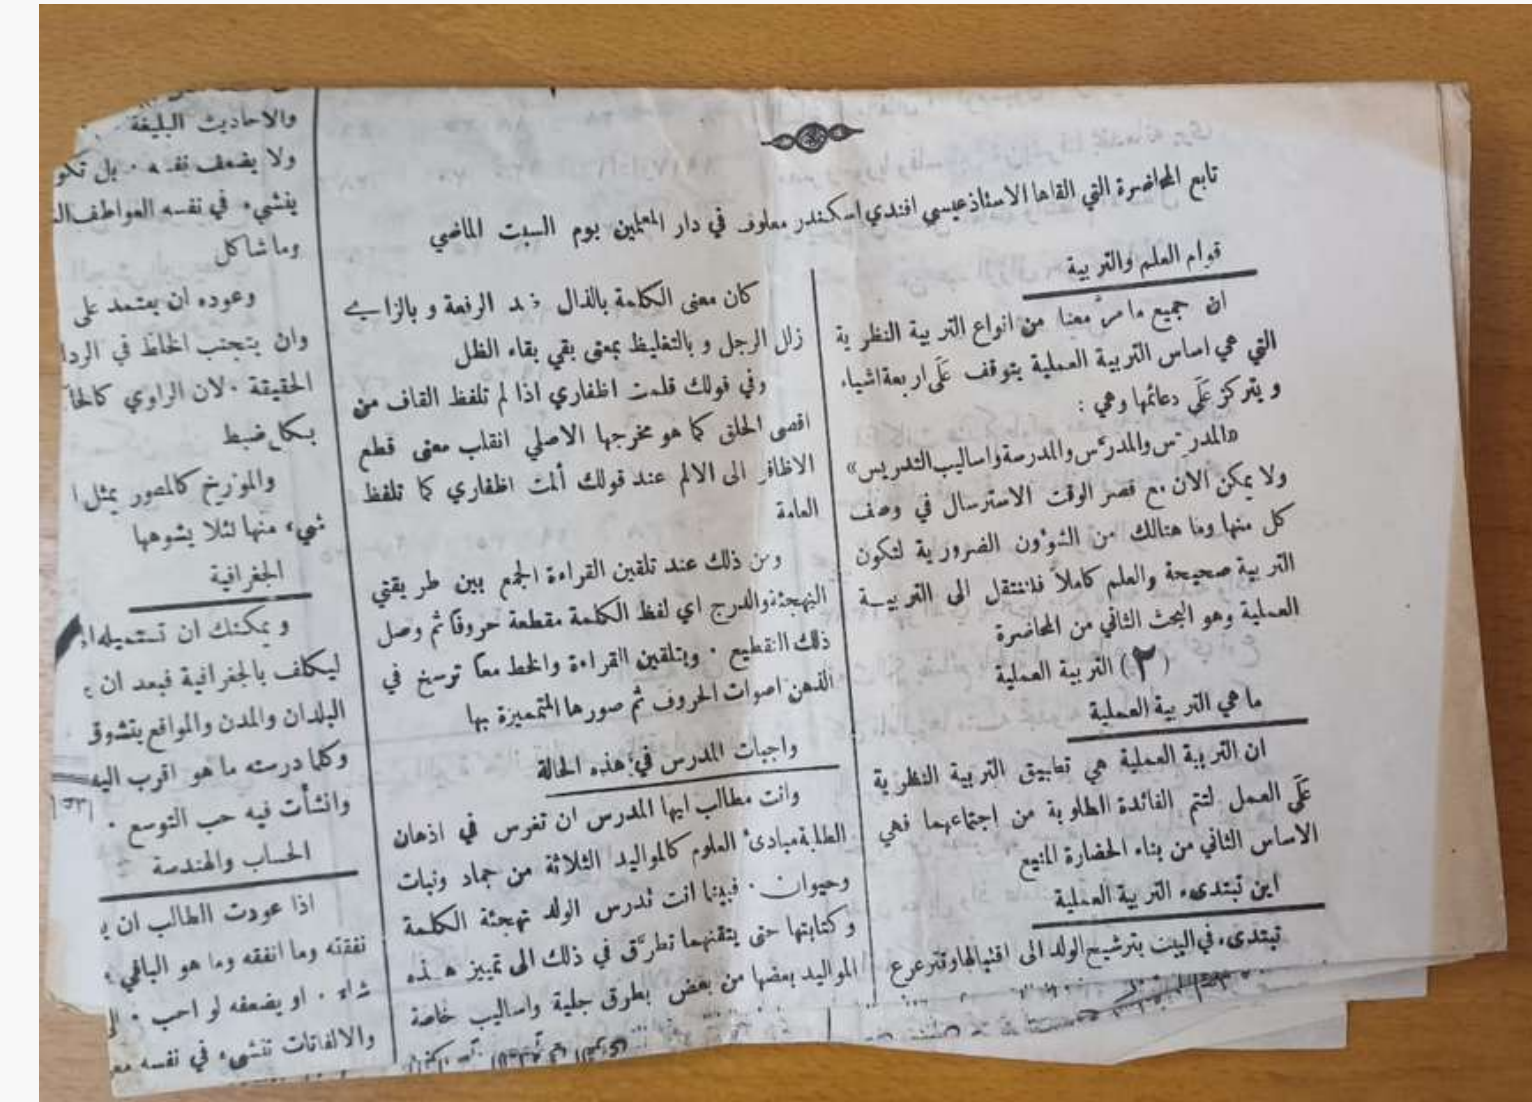 تابع المحاضرة التي القاها الاستاذ عيسى افندي اسكندر معلوف في دار المعلمين يوم السبت الماضي
قوام العلم والتربية
ان جميع ما مرَّ معنا من انواع التربية النظرية
التي هي اساس التربية العملية يتوقف عَلَى اربعة اشياء
ويتركز عَلَى دعائمها وهي :
«المدرِّس والمدرَّس والمدرسة واساليب التدريس»
ولا يمكن الان مع قصر الوقت الاسترسال في وصف
كل منها وما هنالك من الشوءون الضرورية لتكون
التربية صحيحة والعلم كاملاً فلننتقل الى التربيـة
العملية وهو البحث الثاني من المحاضرة
(٢) التربية العملية
ما هي التربية العملية
ان التربية العملية هي تطبيق التربية النظرية
عَلَى العمل لتتم الفائدة المطلوبة من اجتماعهما فهي
الاساس الثاني من بناء الحضارة المنيع
اين تبتدىء التربية العملية
تبتدىء في البيت بترشيح الولد الى اقتبالها وتترعرع
كان معنى الكلمة بالذال ضد الرفعة وبالزاي
زلل الرجل وبالتغليظ بمعنى بقي بقاء الظل
وفي قولك قلمت اظفاري اذا لم تلفظ القاف من
اقصى الحلق كما هو مخرجها الاصلي انقلب معنى قطع
الاظافر الى الالم عند قولك ألمت اظفاري كما تلفظ
العامة
ومن ذلك عند تلقين القراءة الجمع بين طريقتي
التهجئة والدرج اي لفظ الكلمة مقطعة حروفاً ثم وصل
ذلك التقطيع . وبتلقين القراءة والخط معاً ترسخ في
الذهن اصوات الحروف ثم صورها المتميزة بها
واجبات المدرس في هذه الحالة
وانت مطالب ايها المدرس ان تغرس في اذهان
الطلبة مبادئ العلوم كالمواليد الثلاثة من جماد ونبات
وحيوان . فبينما انت تدرس الولد تهجئة الكلمة
وكتابتها حتى يتقنهما تطرَّق في ذلك الى تمييز هـذه
المواليد بعضها من بعض بطرق جلية واساليب خاصة
والاحاديث البليغة
ولا يضعف نفسه . بل
ينشيء في نفسه العواطف
وما شاكل
وعوده ان يعتمد على
وان يتجنب الخلط في
الحقيقة . لان الراوي
بكل ضبط
والمؤرخ كالمصور يمثل
شيء منها لئلا يشوهها
الجغرافية
ويمكنك ان تستميله
ليكلف بالجغرافية فبعد ان
البلدان والمدن والمواقع يتشوق
وكلما درسته ما هو اقرب اليه
وانشأت فيه حب التوسع .
الحساب والهندسة
اذا عودت الطالب ان
نفقته وما انفقه وما هو الباقي
شاء . او يضعفه لو احب .
والالفات تنشيء في نفسه